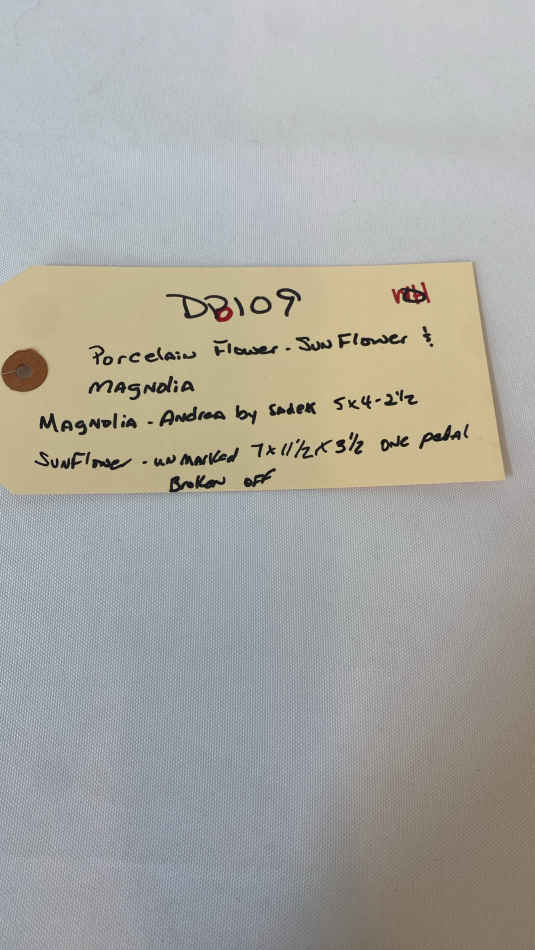 DB109
Porcelain Flower - SunFlower &
Magnolia
Magnolia - Andrea by Sadek 5x4-2½
SunFlower - unmarked 7x11½x3½ one petal
Broken off